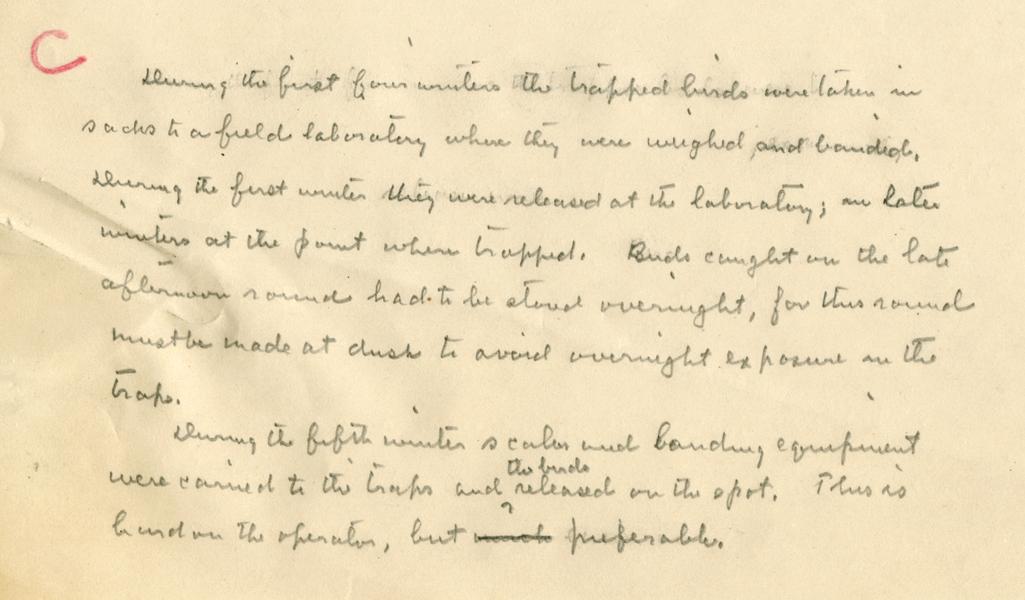 C
During the first four winters the trapped birds were taken in
sacks to a field laboratory where they were weighed and banded.
During the first winter they were released at the laboratory; in later
winters at the point where trapped. Birds caught on the late
afternoon round had to be stored overnight, for this round
must be made at dusk to avoid overnight exposure in the
traps.
During the fifth winter scales and banding equipment
the birds
were carried to the traps and released on the spot. This is
hard on the operator, but much preferable.